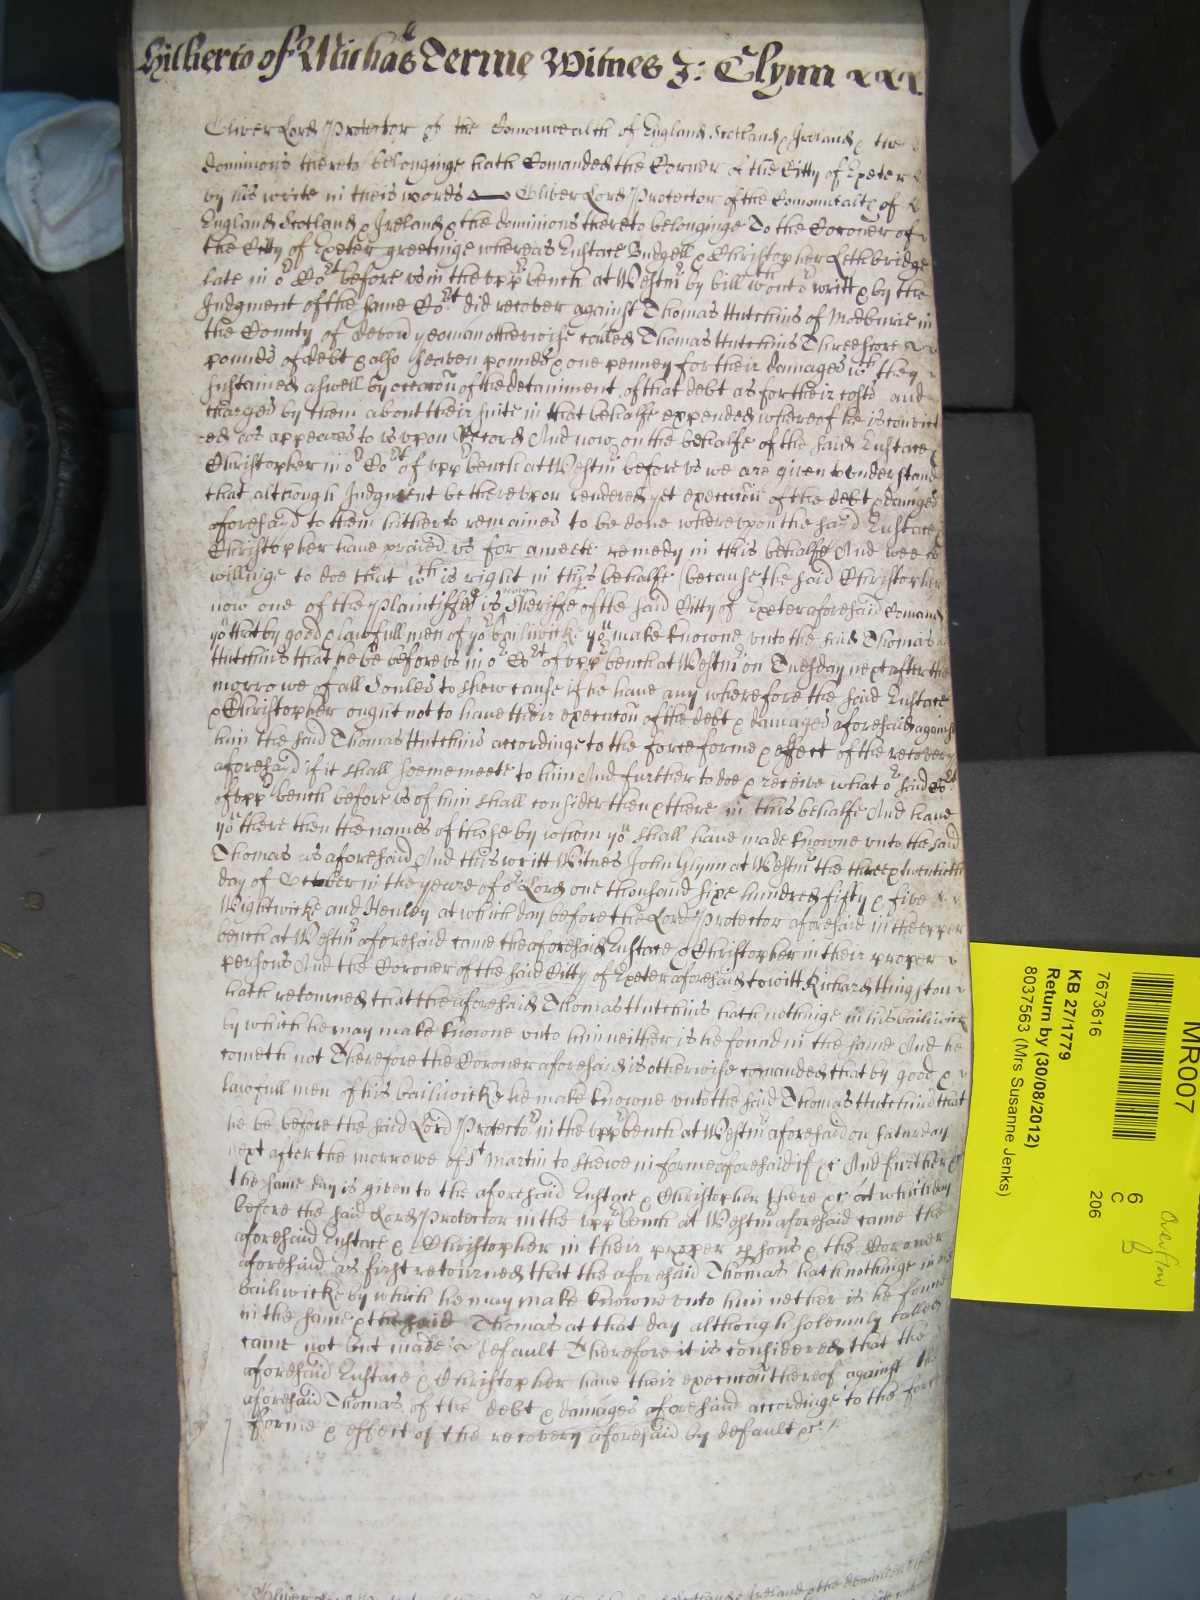 Hitherto of Michas Terme Witnes J: Glynn xxx
Oliver Lord Protector of the Comonwealth of England Scotland & Ireland & the
dominions thereto belonginge hath Comanded the Corner of the Citty of Exeter
by his write in theis words — Oliver Lord Protector of the Comonwealth of
England Scotland & Ireland & the dominions thereto belonginge To the Coroner of
the Citty of Exeter greetinge whereas Eustace Budgell & Christopher Lethbridge
late in or Cort before us in the uppr bench at Westmr by bill wthout or writt & by the
Judgment of the same Cort did recover against Thomas Hutchins of Modburie in
the County of Devon yeoman otherwise called Thomas Hutchins Threescore
pounds of debt & also seaven pounds & one penney for their damages wch they
sustained aswell by occacon of the detaninment of that debt as for their costs and
charges by them about their suite in that behalfe expended whereof he is convict
ed as appeares to us upon Record And now on the behalfe of the said Eustace &
Christopher in or Cort of uppr bench at Westmr before us we are given to understand
that although Judgment be thereupon rendered yet execucon of the debt & damages
aforesayd to them hitherto remaines to be done whereupon the sayd Eustace &
Christopher have praied us for a meete remedy in this behalfe And wee
willinge to doe that wch is right in this behalfe (because the said Christopher
now one of the Plaintiffes is now Sheriffe of the said Citty of Exeter aforesaid Comand
you that by good & lawfull men of yor bailiwicke you make knowne unto the said Thomas
Hutchins that he be before us in or Cort of uppr bench at Westmr on Tuesday next after the
morrowe of all Soules to shew cause if he have any wherefore the said Eustace
& Christopher ought not to have their execucon of the debt & damages aforesaid against
him the said Thomas Hutchins accordinge to the force forme & effect of the recovery
aforesayd if it shall seeme meete to him And further to doe & receive what or said Cort
of uppr bench before us of him shall consider then & there in this behalfe And have
you there then the names of those by whom you shall have made knowne unto the said
Thomas as aforesaid And this writt Witnes John Glynn at Westmr the three & twentieth
day of October in the yeare of or Lord one thousand sixe hundred fifty & five
Wightwicke and Henley at which day before the Lord Protector aforesaid in the upper
bench at Westmr aforesaid came the aforesaid Eustace & Christopher in their proper
persons And the Coroner of the said Citty of Exeter aforesaid to witt Richard Hingston
hath retourned that the aforesaid Thomas Hutchins hath nothinge in his bailiwicke
by which he may make knowne unto him neither is he found in the same And he
cometh not Therefore the Coroner aforesaid is otherwise comanded that by good &
lawfull men of his bailiwicke he make knowne unto the said Thomas Hutchins that
he be before the said Lord Protector in the uppr bench at Westmr aforesaid on Saturday
next after the morrowe of St Martin to shewe in forme aforesaid if &c And further &c
the same day is given to the aforesaid Eustace & Christopher there &c at which day
before the said Lord Protector in the uppr bench at Westmr aforesaid came the
aforesaid Eustace & Christopher in their proper persons & the Coroner
aforesaid as first retourned that the aforesaid Thomas hath nothinge in his
bailiwicke by which he may make knowne unto him nether is he found
in the same & the said Thomas at that day although solemnly called
came not but made default Therefore it is considered that the
aforesaid Eustace & Christopher have their execucon thereof against the
aforesaid Thomas of the debt & damages aforesaid accordinge to the force
forme & effect of the recovery aforesaid by default &c
MR007
7673616
6
C
206
KB 27/1779
Return by (30/08/2012)
8037563 (Mrs Susanne Jenks)